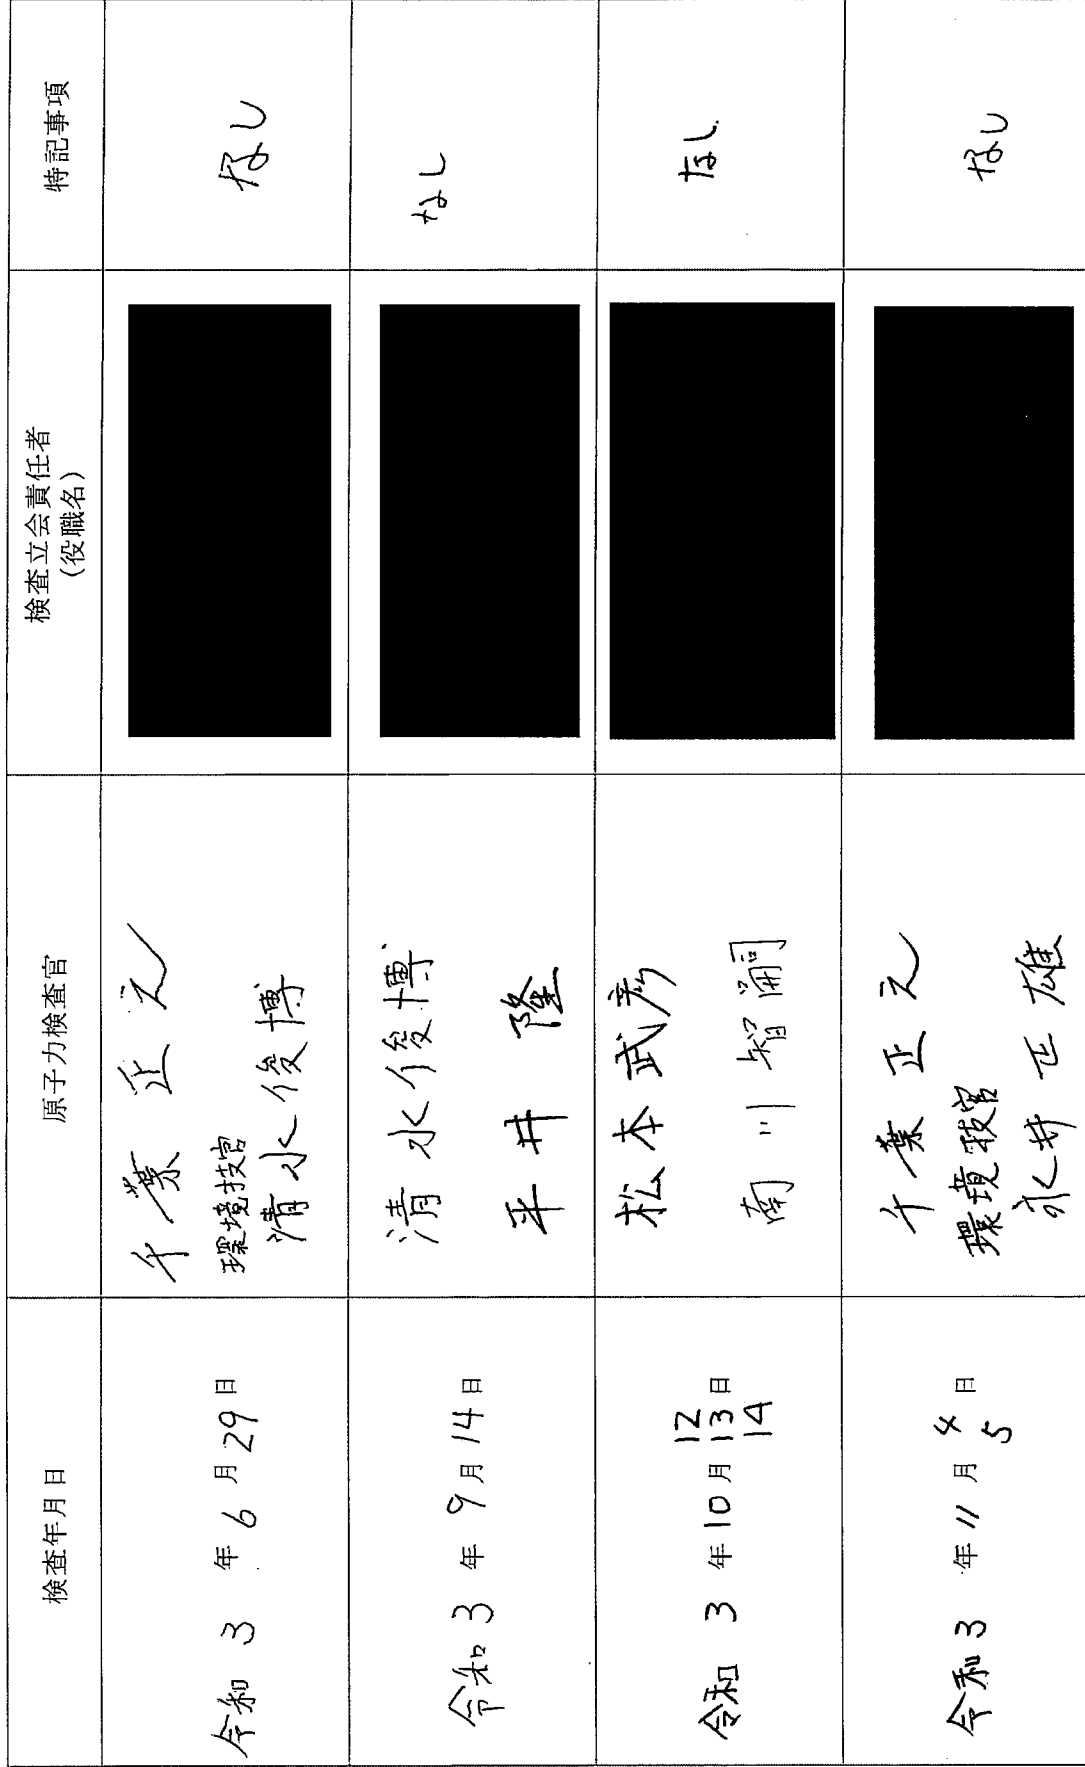 検査年月日
原子力検査官
検査立会責任者
(役職名)
特記事項
令和 3 年 6 月 29 日
千葉 正之
環境技官
清水俊博
なし
令和 3 年 9 月 14 日
清水俊博
平井 隆
なし
令和 3 年 10 月 12 13 14 日
松本武彦
南川智嗣
なし
令和 3 年 11 月 4 5 日
千葉 正之
環境技官
永井 正雄
なし